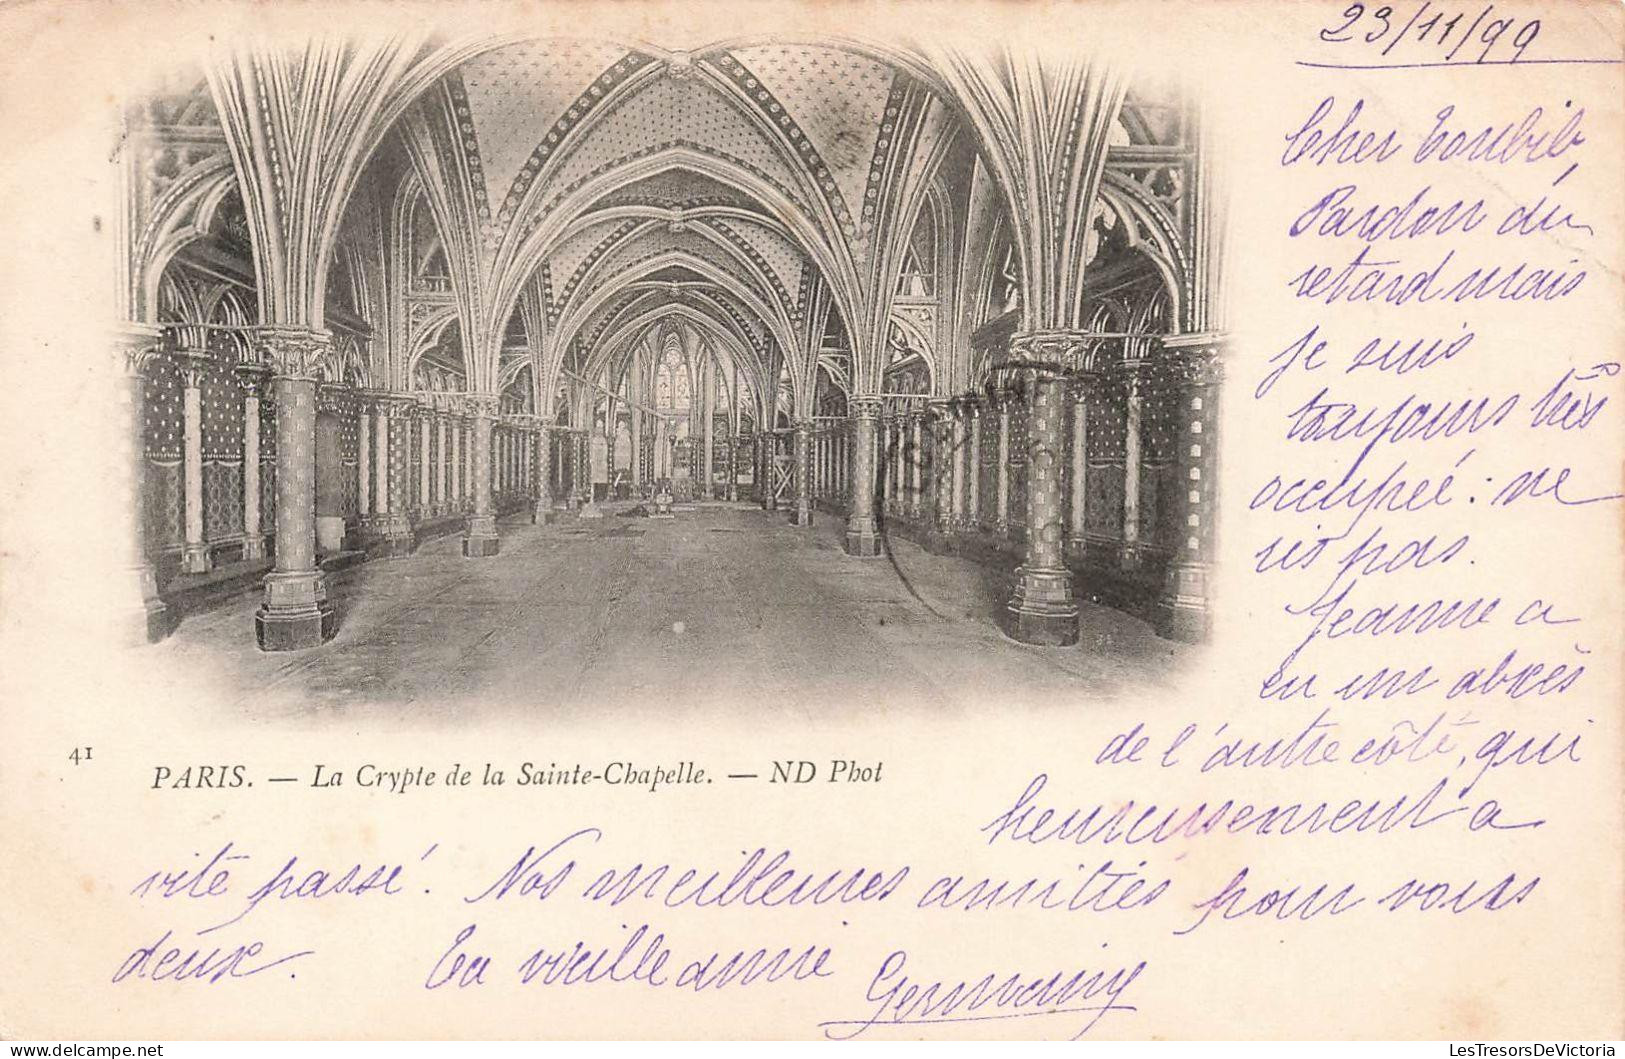 23/11/99
Cher Toubib,
Pardon du
retard mais
je suis
toujours très
occupée : ne
ris pas.
Jeanne a
eu un abcès
de l'autre côté, qui
heureusement a
41
PARIS. — La Crypte de la Sainte-Chapelle. — ND Phot
vite passé. Nos meilleures amitiés pour vous
deux. Ta vieille amie
Germaine
LesTresorsDeVictoria